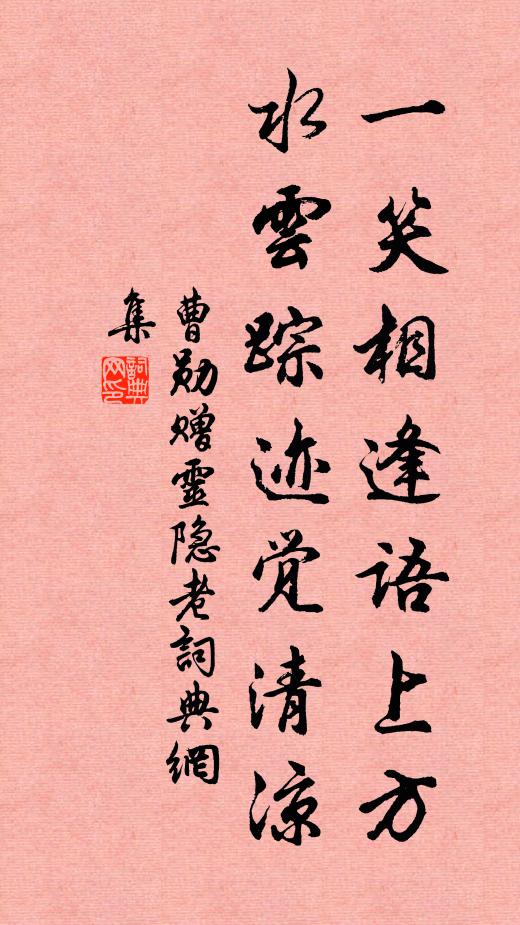 一笑相逢语上方
水雲踪迹觉清凉
曹勋赠靈隐老詞典網
集
詞典網印